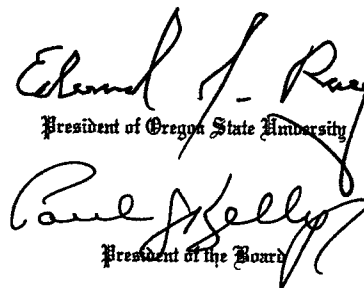 Edward J. Ray
President of Oregon State University
Paul J Kelly
President of the Board